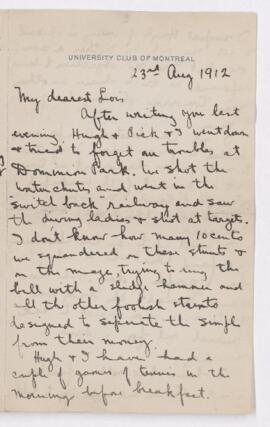 UNIVERSITY CLUB OF MONTREAL
23rd Aug 1912
My dearest Lois
After writing you last
evening Hugh & Dick & I went down
& tried to forget our troubles at
Dominion Park. We shot the
water chutes and went in the
switch back railway and saw
the diving ladies & shot at targets.
I don't know how many 10 cents
we squandered on these stunts &
on the maze, trying to ring the
bell with a sledge hammer and
all the other foolish stunts
designed to seperate the simple
from their money.
Hugh & I have had a
couple of games of tennis in the
morning before breakfast.